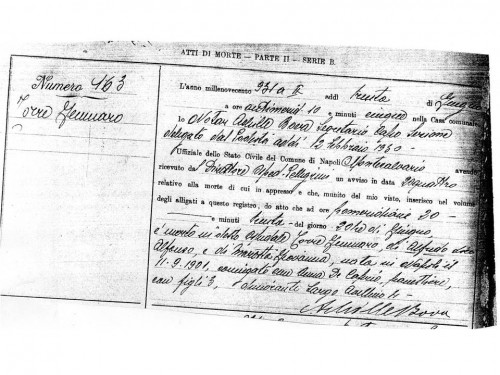 ATTI DI MORTE — PARTE II — SERIE B.
Numero 163
Torre Gennaro
L'anno millenovecento 931 a IX addì trenta di Giugno
a ore antimerid. 10 e minuti nella Casa comunale
Io Notar Achille Bova Segretario Capo Sezione
delegato dal Podestà addì 12 Febbraio 1930
Uffiziale dello Stato Civile del Comune di Napoli Montecalvario avendo
ricevuto dal Direttore Osped. Pellegrini un avviso in data
relativo alla morte di cui in appresso e che, munito del mio visto, inserisco nel volume
degli allegati a questo registro, do atto che ad ore pomeridiane 20 -
e minuti trenta - del giorno di Giugno
è morto in detto ospedale Torre Gennaro, di Alfredo
Alfonso, e di Giovanna, nato in Napoli il
11-9-1901, coniugato con Anna De
con figli 3, domiciante Largo Avellino
Achille Bova